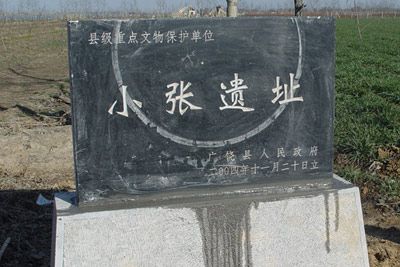 县级重点文物保护单位
小张遗址
广饶县人民政府
二〇〇四年十一月二十日立